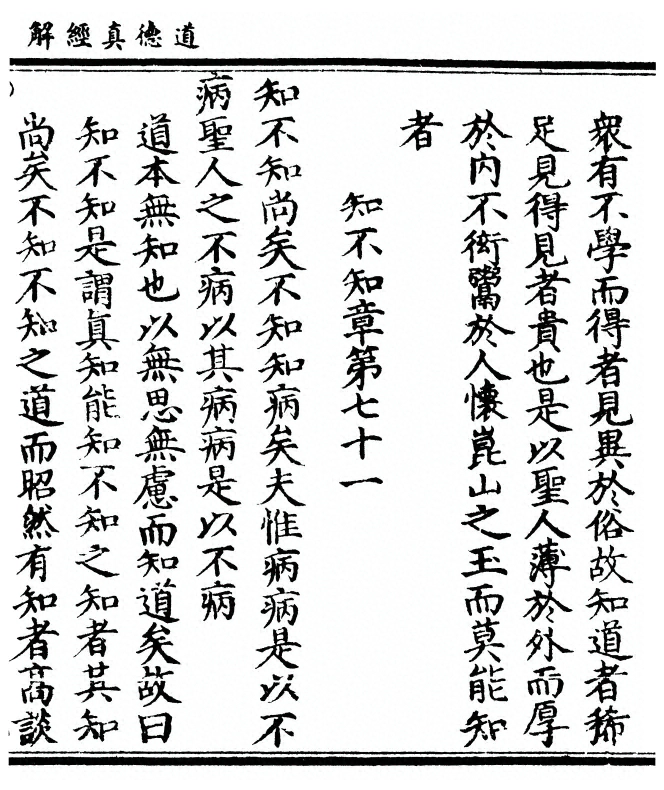 道德真經解
眾有不學而得者見異於俗故知道者稀
足見得見者貴也是以聖人薄於外而厚
於內不衒鬻於人懷崑山之玉而莫能知
者
知不知章第七十一
知不知尚矣不知知病矣夫惟病病是以不
病聖人之不病以其病病是以不病
道本無知也以無思無慮而知道矣故曰
知不知是謂真知能知不知之知者其知
尚矣不知不知之道而昭然有知者高談